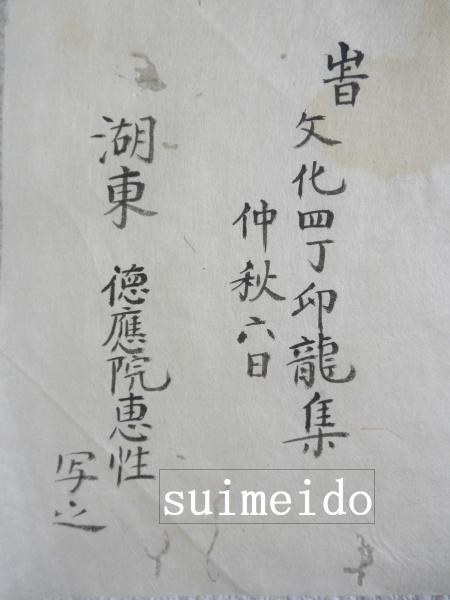 旹文化四丁卯龍集
仲秋六日
湖東 德應院恵性
写之
suimeido